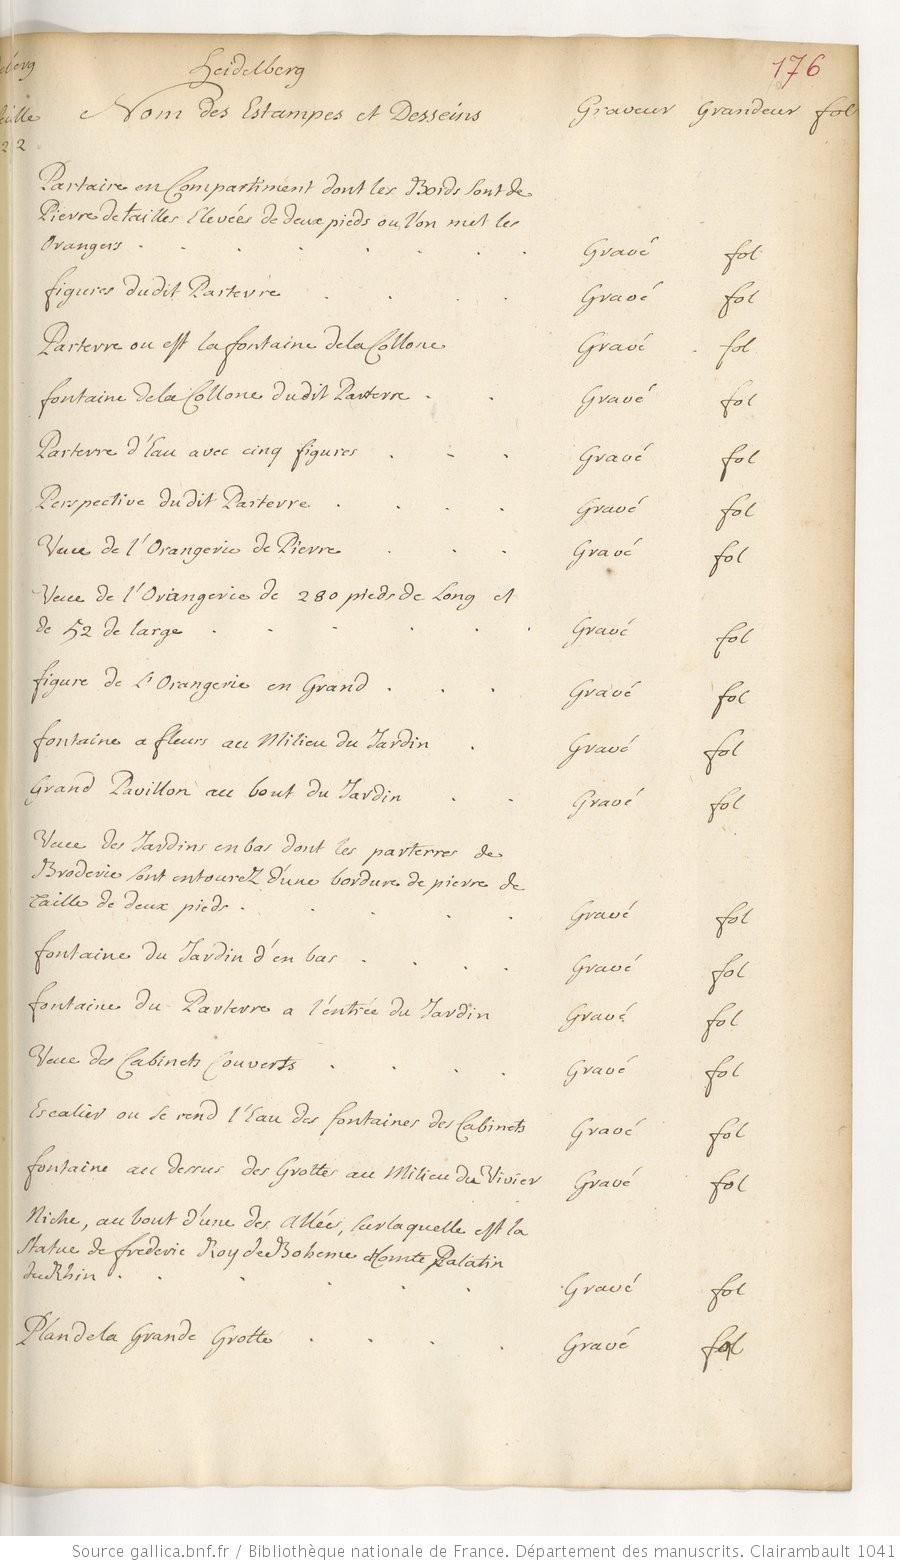 Heidelberg
176
Nom des Estampes et Desseins Graveur Grandeur fol
Partaire en Compartiment dont les Bords sont de
Pierre de tailles Elevées de deux pieds ou l'on met les
Orangers . . . . . . . Gravé fol
figures dudit Parterre . . . . Gravé fol
Parterre ou est la fontaine de la Collone Gravé . fol
fontaine de la Collone dudit Parterre . . Gravé fol
Parterre d'Eau avec cinq figures . - . Gravé fol
Perspective dudit Parterre . . . . Gravé fol
Veue de l'Orangerie de Pierre . . . Gravé fol
Veue de l'Oriangerie de 280 pieds de Long et
de 52 de large . . . . . . Gravé fol
figure de l'Orangerie en Grand . . . Gravé fol
fontaine a fleurs au Milieu du Jardin . Gravé fol
Grand Pavillon au bout du Jardin . . Gravé fol
Veue des Jardins en bas dont les parterres de
Broderie sont entourez d'une bordure de pierre de
taille de deux pieds . . . . . Gravé fol
fontaine du Jardin d'en bas . . . . Gravé fol
fontaine du Parterre a l'entrée du Jardin Gravé fol
Veue des Cabinets Couverts . . . . Gravé fol
Escalier ou se rend l'Eau des fontaines des Cabinets Gravé fol
fontaine au dessus des Grottes au Milieu du Vivier Gravé fol
Niche, au bout d'une des Allées, sur laquelle est la
Statue de frederic Roy de Boheme Comte Palatin
du Rhin . . . . . Gravé fol
Plan de la Grande Grotte . . . . Gravé fol
Source gallica.bnf.fr / Bibliothèque nationale de France. Département des manuscrits. Clairambault 1041